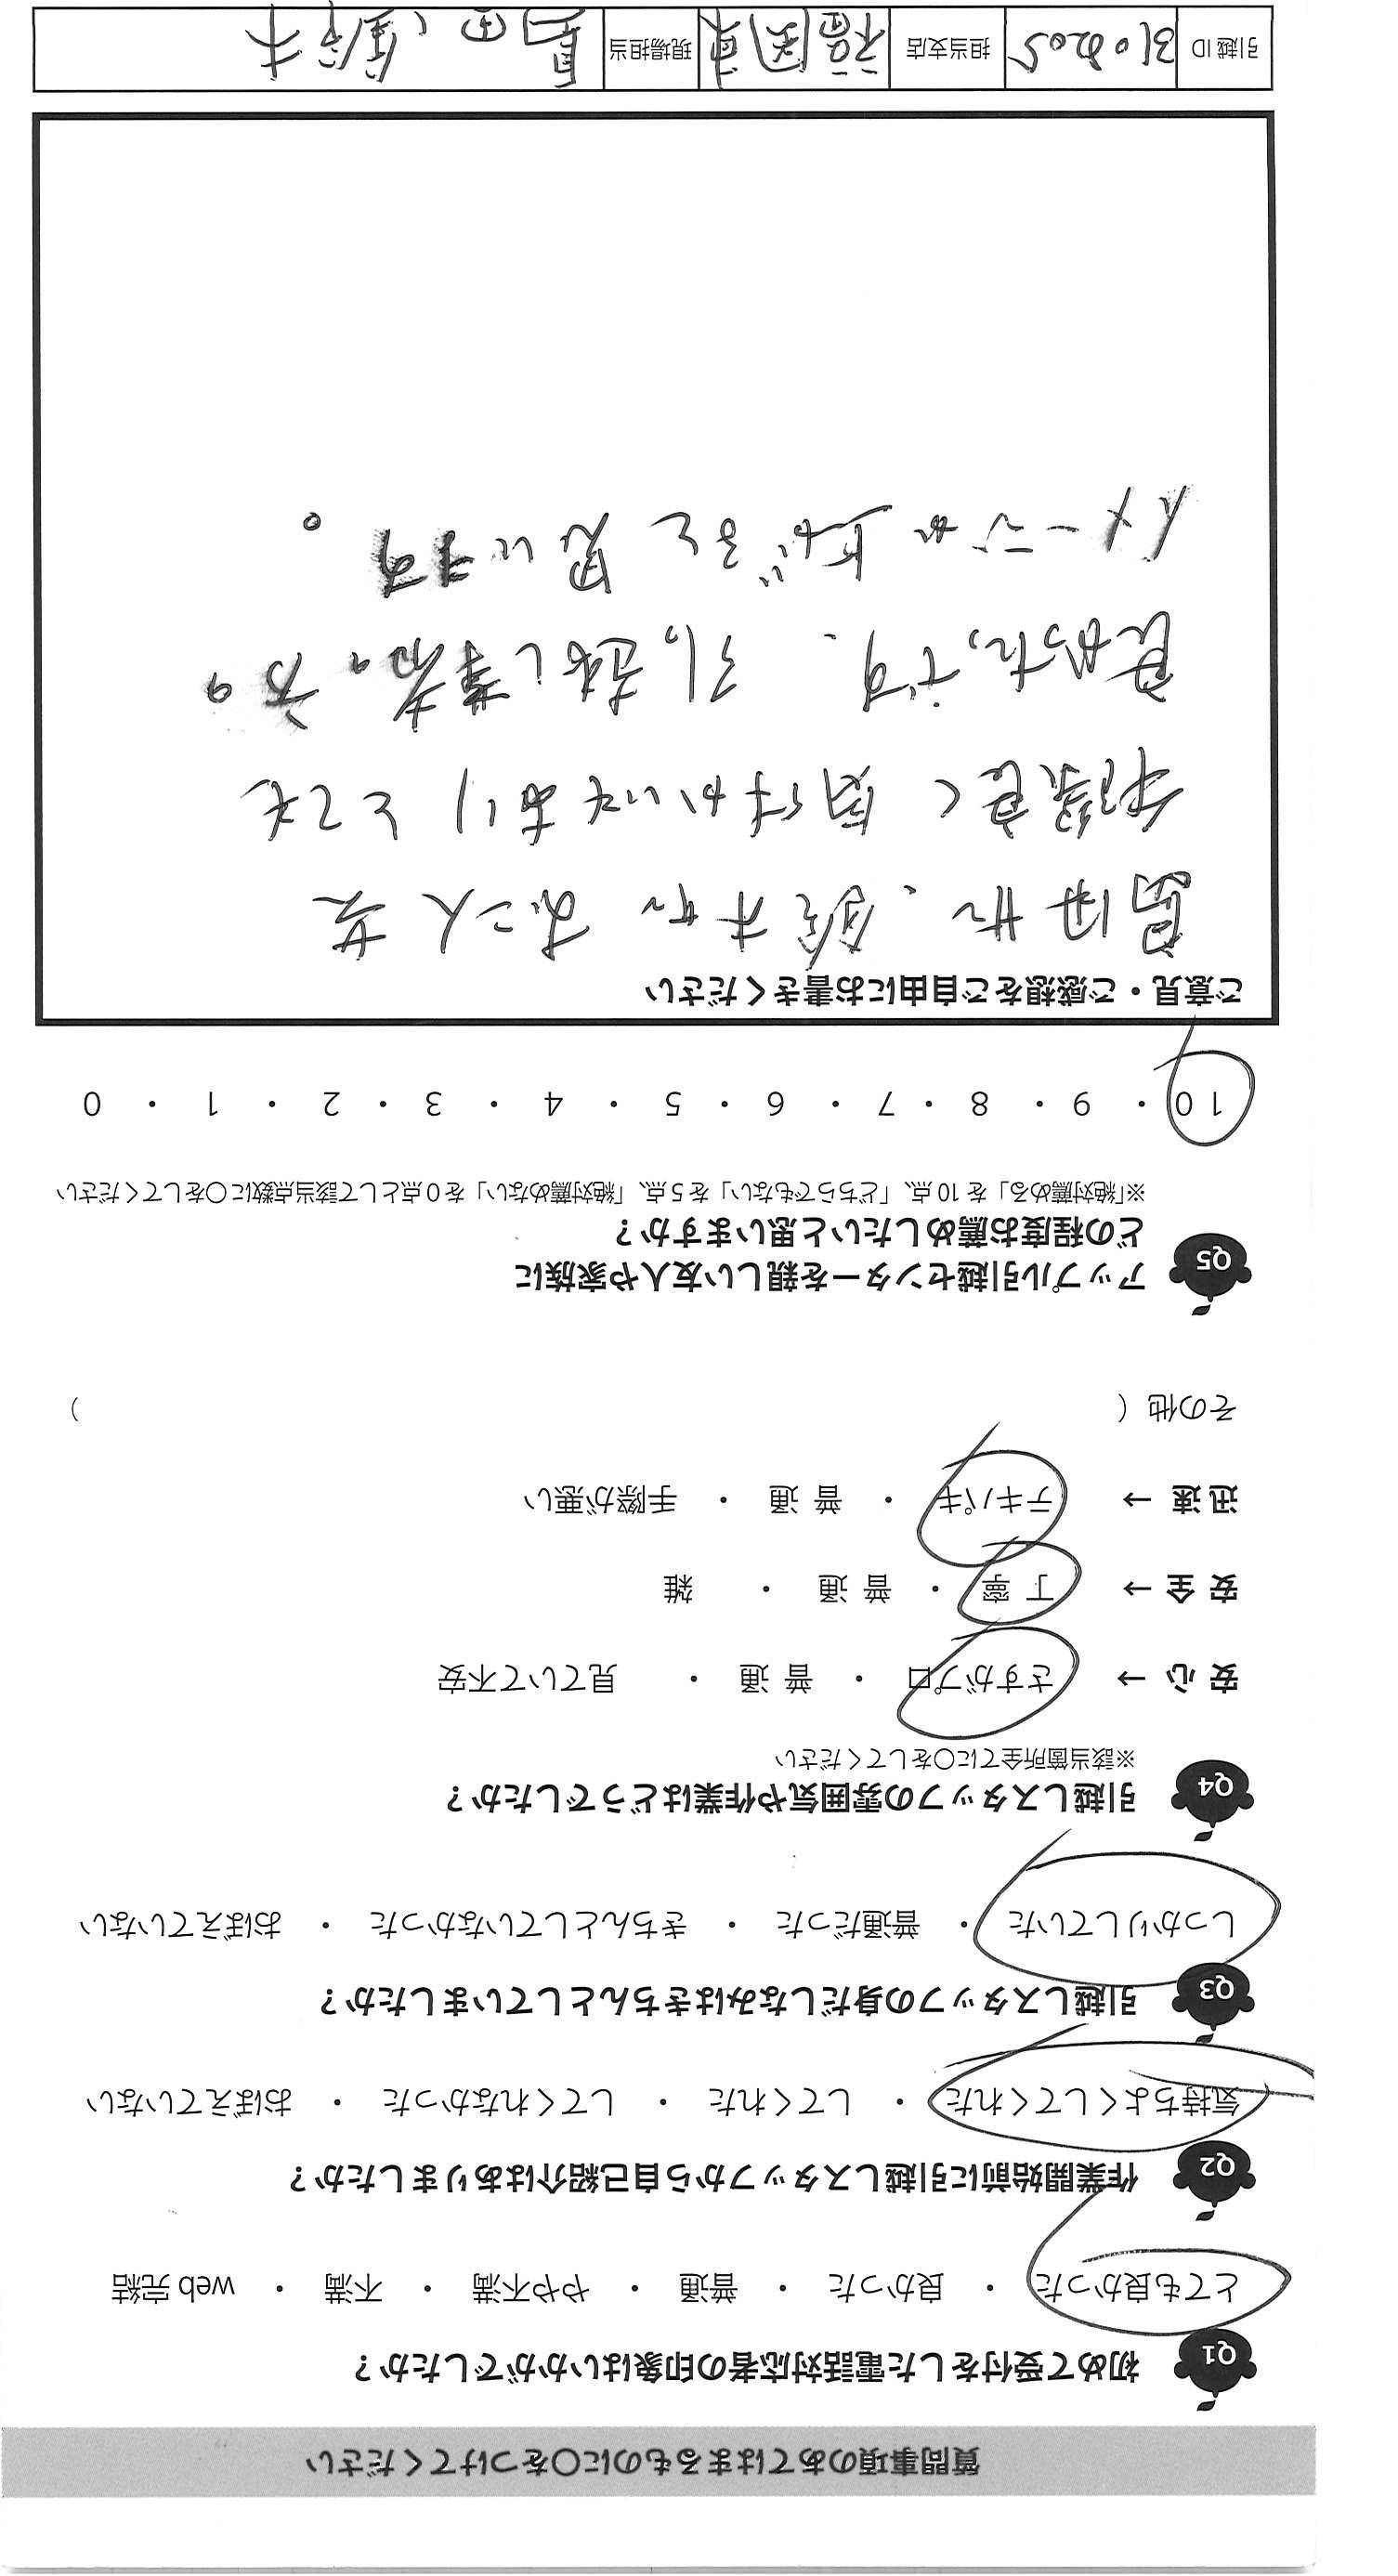 質問事項のあてはまるものに〇をつけてください
Q1 初めて受付をした電話対応者の印象はいかがでしたか？
とても良かった ・ 良かった ・ 普通 ・ やや不満 ・ 不満 ・ web 完結
Q2 作業開始前に引越しスタッフから自己紹介はありましたか？
気持ちよくしてくれた ・ してくれた ・ してくれなかった ・ おぼえていない
Q3 引越しスタッフの身だしなみはきちんとしていましたか？
しっかりしていた ・ 普通だった ・ きちんとしていなかった ・ おぼえていない
Q4 引越しスタッフの雰囲気や作業はどうでしたか？
※該当箇所全てに〇をしてください
安 心 → さすがプロ ・ 普 通 ・ 見ていて不安
安 全 → 丁 寧 ・ 普 通 ・ 雑
迅 速 → テキパキ ・ 普 通 ・ 手際が悪い
その他（ ）
Q5 アップル引越センターを親しい友人や家族に
どの程度お薦めしたいと思いますか？
※「絶対薦める」を 10 点、「どちらでもない」を 5 点、「絶対薦めない」を 0 点として該当点数に〇をしてください
10 ・ 9 ・ 8 ・ 7 ・ 6 ・ 5 ・ 4 ・ 3 ・ 2 ・ 1 ・ 0
ご意見・ご感想をご自由にお書きください
島田サン、鈴木サン お二人共
手際良く 気付かいており とても
良かったです、引っ越し業者の方の
イメージが上がると思います。
引越 ID 担当支店 福岡東 現場担当 島田、鈴木